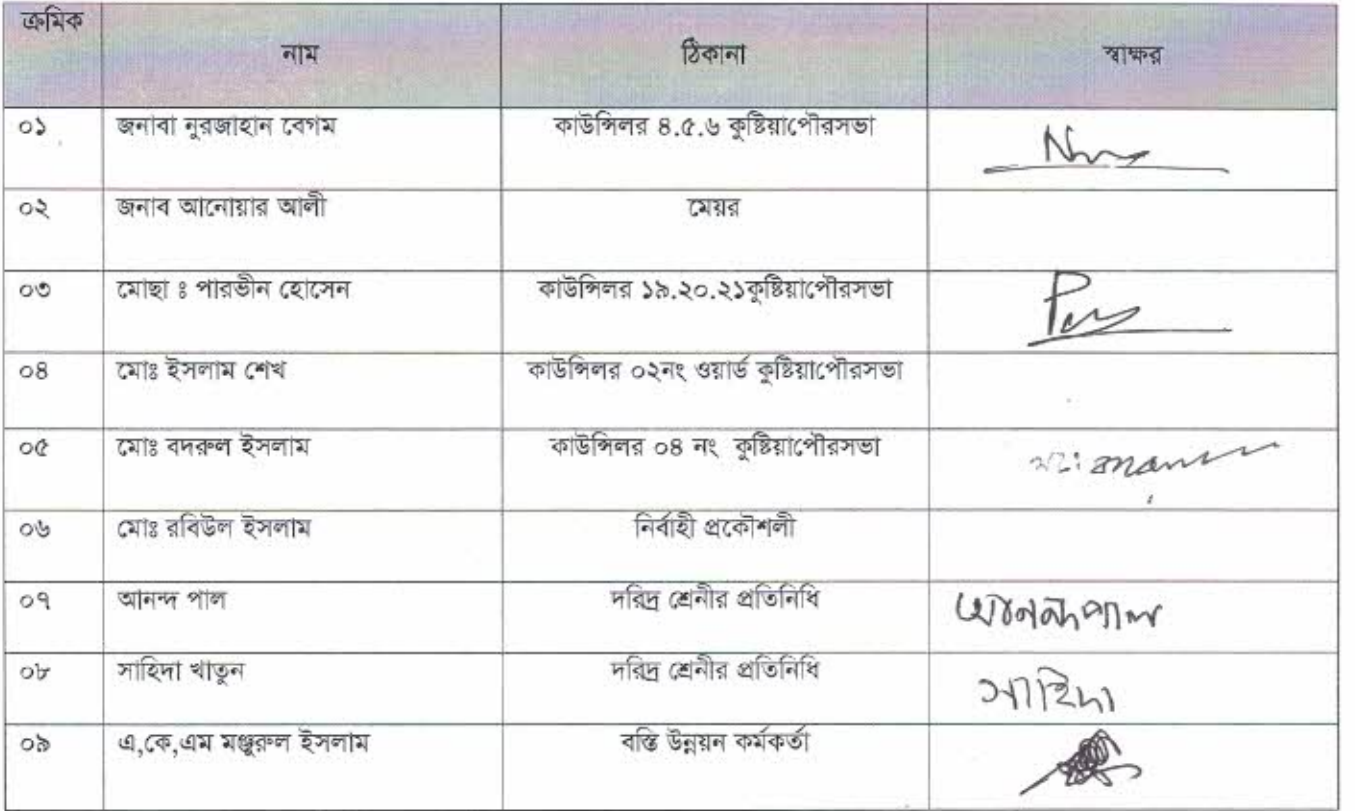 ক্রমিক নাম ঠিকানা স্বাক্ষর
০১ জনাবা নুরজাহান বেগম কাউন্সিলর ৪.৫.৬ কুষ্টিয়াপৌরসভা
০২ জনাব আনোয়ার আলী মেয়র
০৩ মোছা ঃ পারভীন হোসেন কাউন্সিলর ১৯.২০.২১কুষ্টিয়াপৌরসভা
০৪ মোঃ ইসলাম শেখ কাউন্সিলর ০২নং ওয়ার্ড কুষ্টিয়াপৌরসভা
০৫ মোঃ বদরুল ইসলাম কাউন্সিলর ০৪ নং কুষ্টিয়াপৌরসভা
০৬ মোঃ রবিউল ইসলাম নির্বাহী প্রকৌশলী
০৭ আনন্দ পাল দরিদ্র শ্রেনীর প্রতিনিধি আনন্দ পাল
০৮ সাহিদা খাতুন দরিদ্র শ্রেনীর প্রতিনিধি সাহিদা
০৯ এ,কে,এম মঞ্জুরুল ইসলাম বস্তি উন্নয়ন কর্মকর্তা